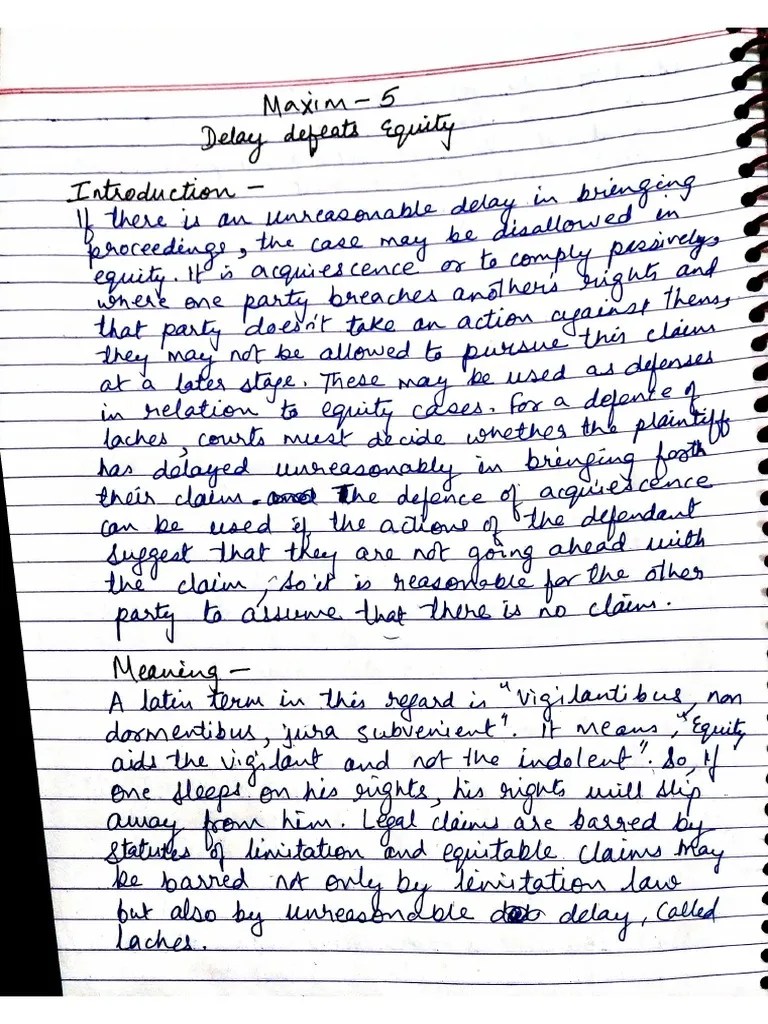 Maxim - 5
Delay defeats Equity
Introduction -
If there is an unreasonable delay in bringing
proceedings, the case may be disallowed in
equity. It is acquiescence or to comply passively,
where one party breaches another's rights and
that party doesn't take an action against them,
they may not be allowed to pursue this claim
at a later stage. These may be used as defenses
in relation to equity cases. For a defence of
laches, courts must decide whether the plaintiff
has delayed unreasonably in bringing forth
their claim. The defence of acquiescence
can be used if the actions of the defendant
suggest that they are not going ahead with
the claim, so it is reasonable for the other
party to assume that there is no claim.
Meaning -
A latin term in this regard is "vigilantibus, non
dormentibus, jura subvenient". It means, "Equity
aids the vigilant and not the indolent". So, if
one sleeps on his rights, his rights will slip
away from him. Legal claims are barred by
statutes of limitation and equitable claims may
be barred not only by limitation law
but also by unreasonable delay, called
laches.